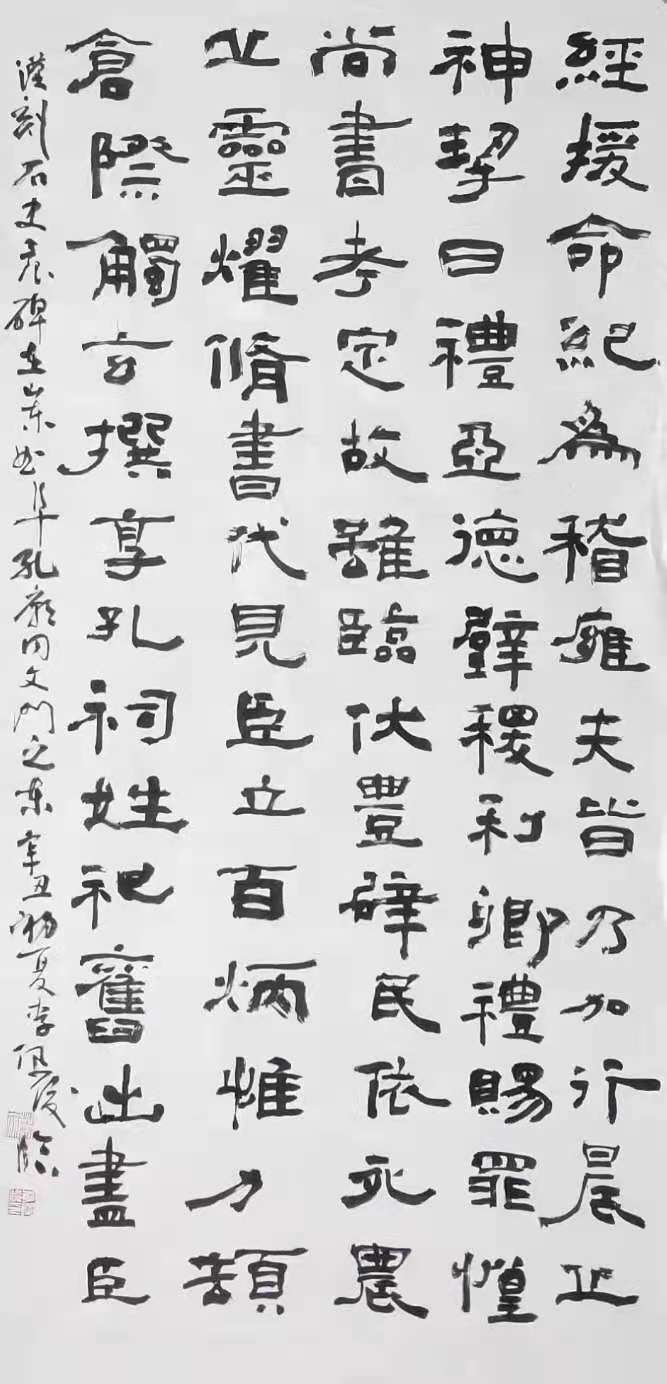 經援命紀為稽雍夫皆乃加行晨止
神挈曰禮亞德辟稷利卿禮賜罪惶
尚書考定故雖臨伏豐辟民依死農
止靈耀脩書代見臣立百炳惟力頡
倉際觸言撰享孔祠姓祀舊出盡臣
漢刻石史晨碑在山東曲阜孔廟同文門之東 辛丑初夏李 臨